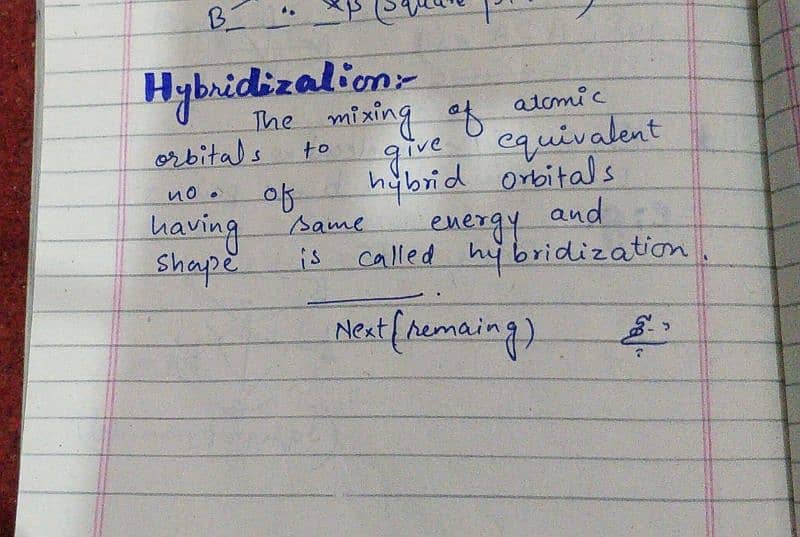 B
Hybridization:-
The mixing of atomic
orbitals to give equivalent
no. of hybrid orbitals
having same energy and
shape is called hybridization.
Next (remaing)